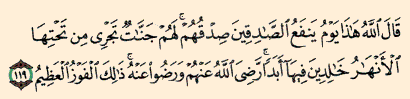 قَالَ ٱللَّهُ هَٰذَا يَوْمُ يَنفَعُ ٱلصَّٰدِقِينَ صِدْقُهُمْ ۚ لَهُمْ جَنَّٰتٌ تَجْرِى مِن تَحْتِهَا
ٱلْأَنْهَٰرُ خَٰلِدِينَ فِيهَآ أَبَدًا ۚ رَّضِىَ ٱللَّهُ عَنْهُمْ وَرَضُوا۟ عَنْهُ ۚ ذَٰلِكَ ٱلْفَوْزُ ٱلْعَظِيمُ ١١٩